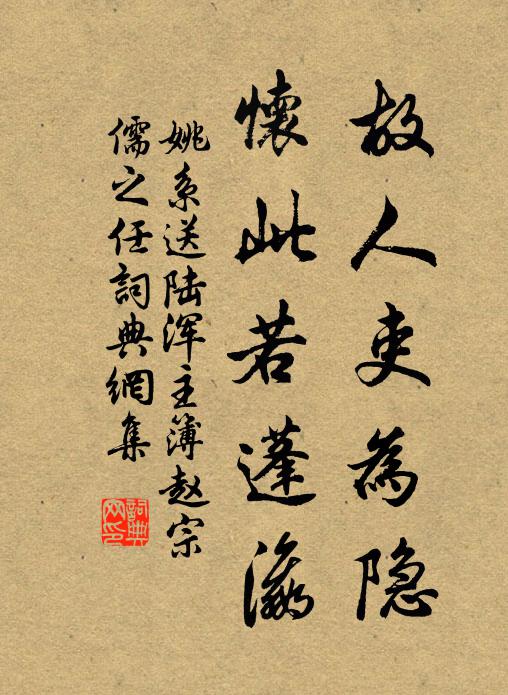 故人吏為隐
懷此若蓬瀛
姚系送陆浑主簿赵宗
儒之任詞典網集
詞典
网印